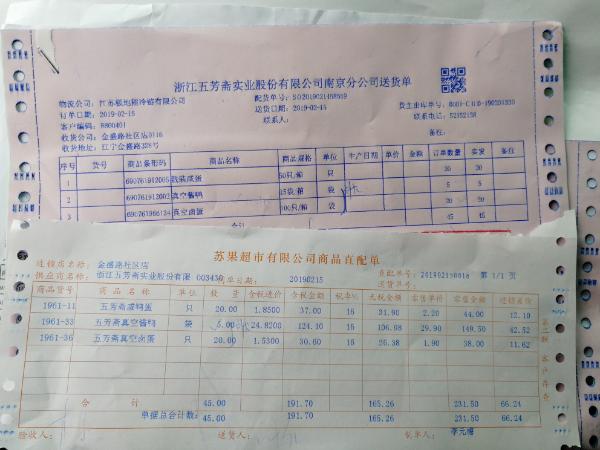 浙江五芳斋实业股份有限公司南京分公司送货单
配货单号:
物流公司: 江苏极地熊冷链有限公司
订单日期: 2019-02-15
送货日期: 2019-02-15
客户编码: 8800401
联系人:
联系电话: 52152158
收货公司: 金盛路社区店0116
备注:
收货地址: 江宁金盛路328号
序号 货号 商品条形码 商品名称 商品规格 单位 生产日期 单价 金额 订单数量 实发 备注
1 散装咸蛋 50只/箱 只 20 20
2 真空酱鸭 袋 5 5
3 真空卤蛋 袋 20 20
合计 45 45
苏果超市有限公司商品直配单
连锁店名称: 金盛路社区店
供应商名称: 浙江五芳斋实业股份有限 003430 制单日期: 20190215 直配单号: 第 1/1 页
送货单号:
商品货号 商品名称 单位 数量 含税进价 含税金额 税率% 无税金额 零售单价 零售金额 进销差价
1961-11 五芳斋咸鸭蛋 只 20.00 1.8500 37.00 16 31.90 2.20 44.00 12.10
1961-33 五芳斋真空酱鸭 袋 5.00 24.8200 124.10 16 106.98 29.90 149.50 42.52
1961-36 五芳斋真空卤蛋 只 20.00 1.5300 30.60 16 26.38 1.90 38.00 11.62
合计 45.00 191.70 165.26 231.50 66.24
单据总合计数: 45.00 191.70 165.26 231.50 66.24
验收人: 送货人: 制单人: 李元梅